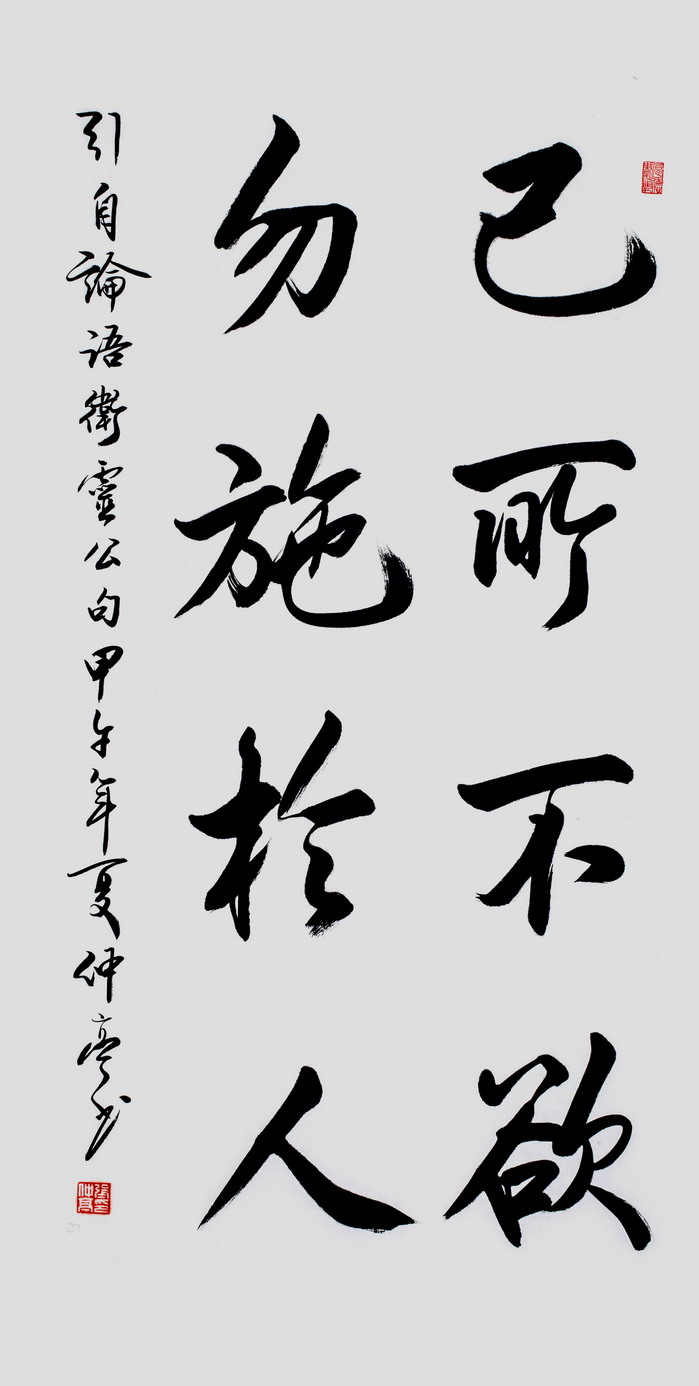 己所不欲
勿施於人
引自論语衛靈公句甲午年夏仲亭书